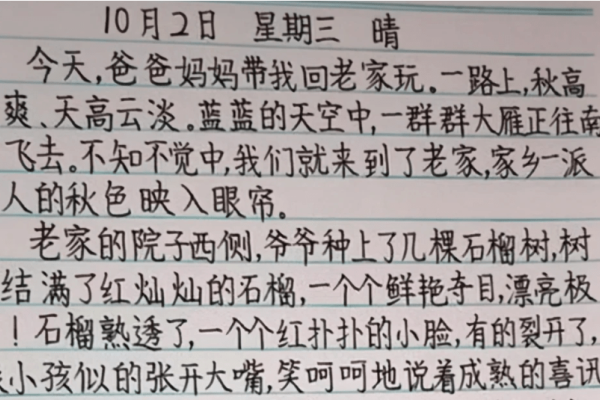 10月2日 星期三 晴
今天,爸爸妈妈带我回老家玩。一路上,秋高
爽、天高云淡。蓝蓝的天空中,一群群大雁正往南
飞去。不知不觉中,我们就来到了老家,家乡一派
人的秋色映入眼帘。
老家的院子西侧,爷爷种上了几棵石榴树,树
结满了红灿灿的石榴,一个个鲜艳夺目,漂亮极
！石榴熟透了,一个个红扑扑的小脸,有的裂开了,
小孩似的张开大嘴,笑呵呵地说着成熟的喜讯